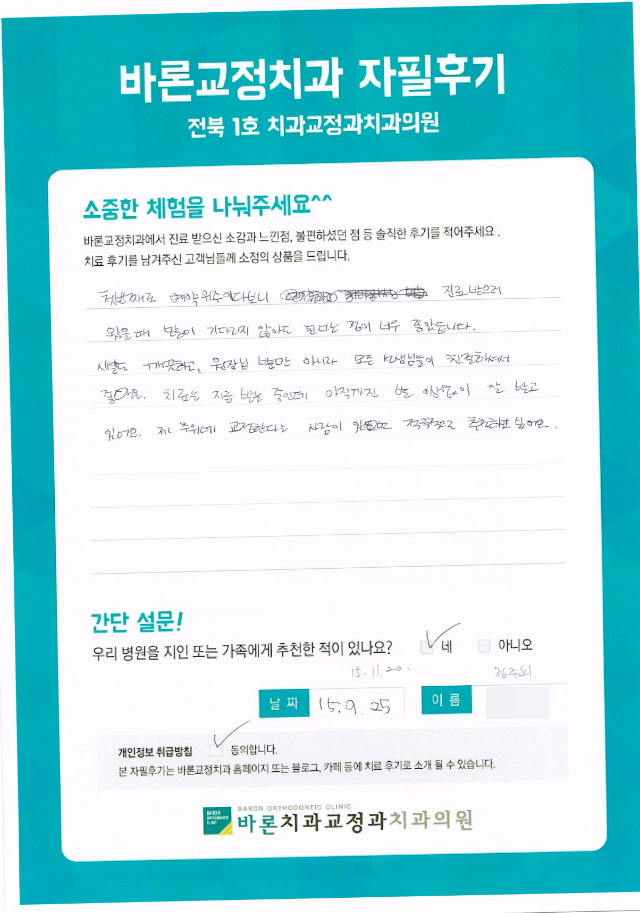 바론교정치과 자필후기
전북 1호 치과교정과치과의원
소중한 체험을 나눠주세요^^
바론교정치과에서 진료 받으신 소감과 느낀점, 불편하셨던 점 등 솔직한 후기를 적어주세요.
치료 후기를 남겨주신 고객님들께 소정의 상품을 드립니다.
첫번째로 예약위주이다보니 진료받으러
왔을때 많이 기다리지 않아도 된다는 점이 너무 좋았습니다.
시설도 깨끗하고, 원장님 뿐만 아니라 모든 선생님들이 친절하셔서
좋아요. 치료는 지금 받는 중인데 아직까진 별 이상없이 잘 받고
있어요. 제 주위에 교정한다는 사람이 있으면 적극적으로 추천하고 싶어요.
간단 설문!
우리 병원을 지인 또는 가족에게 추천한 적이 있나요? 네 아니오
15.11.20.
날짜 15.9.25 이름
개인정보 취급방침 동의합니다.
본 자필후기는 바론교정치과 홈페이지 또는 블로그, 카페 등에 치료 후기로 소개 될 수 있습니다.
BARON ORTHODONTIC CLINIC
BARON ORTHODONTIC CLINIC
바론치과교정과치과의원